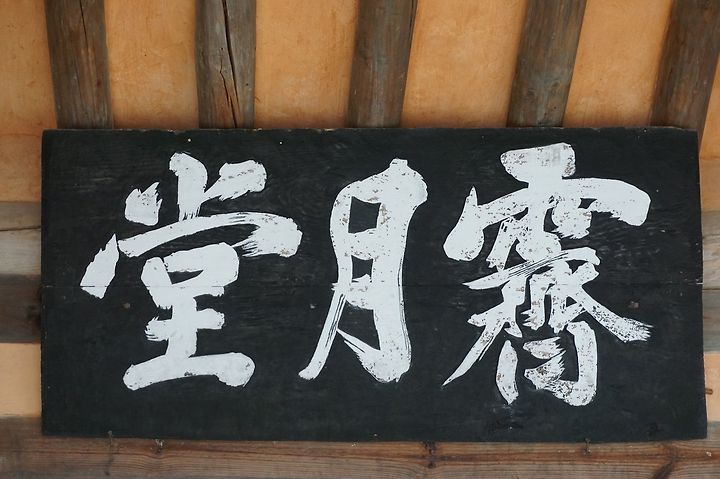 霽月堂